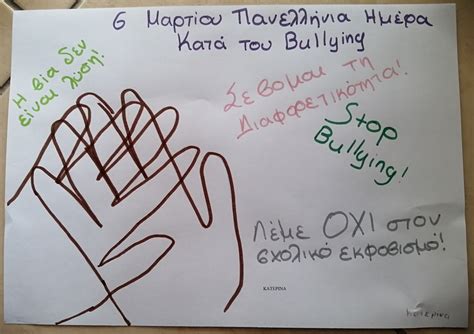 6 Μαρτίου Πανελλήνια Ημέρα
Κατά του Bullying
Η βία δεν
είναι λύση!
Σέβομαι τη
Διαφορετικότητα!
Stop
Bullying!
Λέμε ΌΧΙ στον
σχολικό εκφοβισμό!
ΚΑΤΕΡΙΝΑ
Κατερίνα